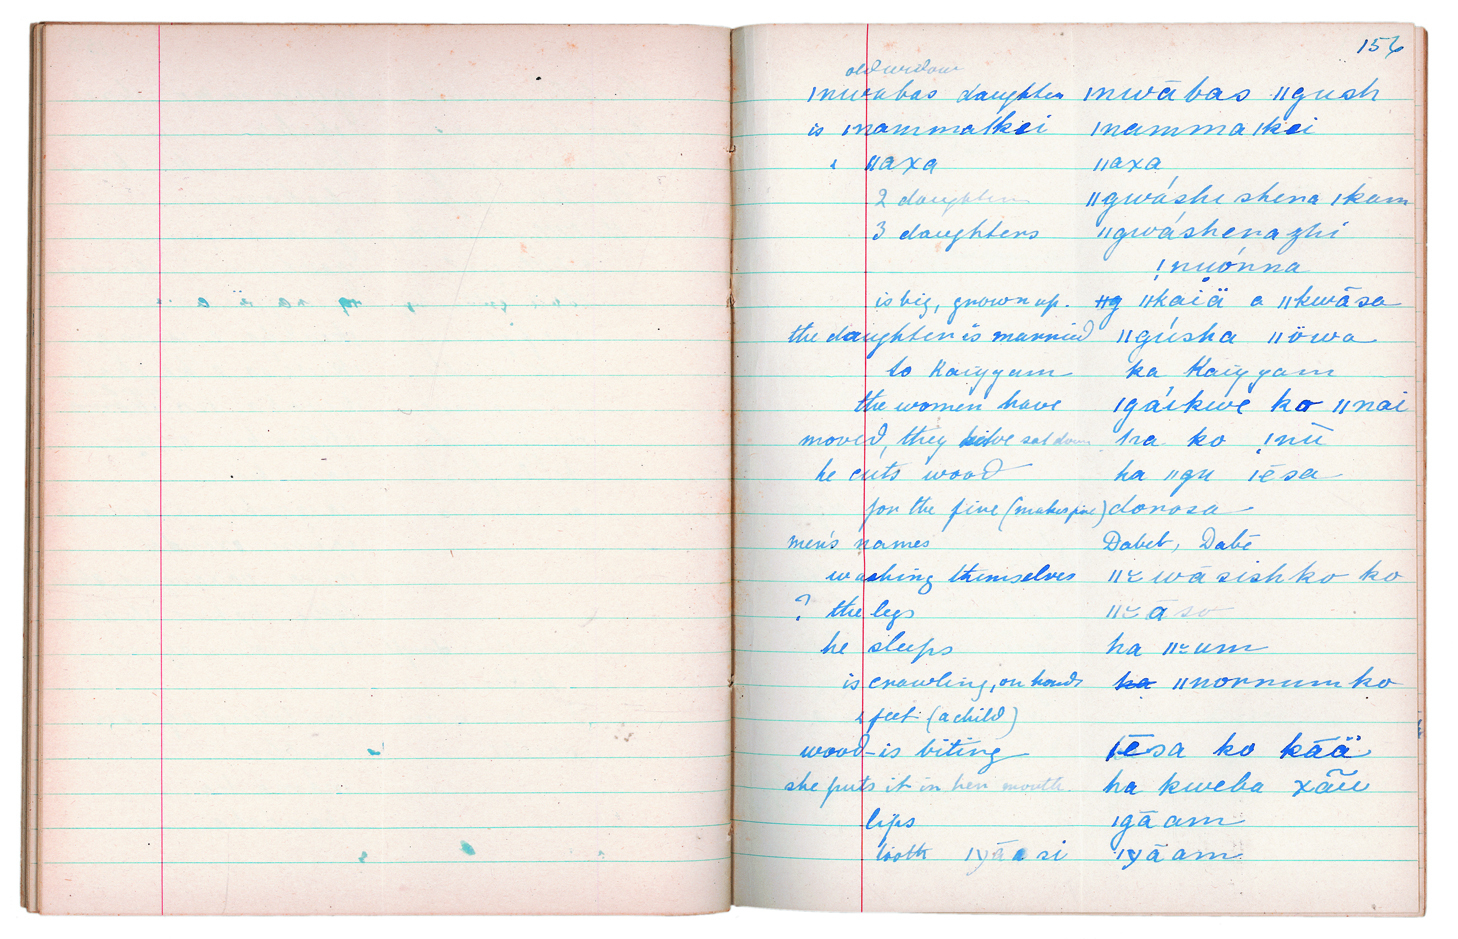 156
old widow
ǀnwabas daughter ǀnwābas ǁgush
is ǀnammaǀkei ǀnammaǀkei
ǁaxa ǁaxa
2 daughters ǁgwáshe shena ǀkam
3 daughters ǁgwáshenazhi
ǃnuónna
is big, grown up. ǁg ǁkaiä a ǁkwāsa
the daughter is married ǁgúsha ǁöwa
to Kaiyyam ka Kaiyyam
the women have ǀgáikwe ko ǁnai
moved, they have sat down ha ko ǃnū
he cuts wood ha ǁgu ǀēsa
for the fire (makes fire) dorosa
men's names Dabeb, Dabē
washing themselves ǁ~wāsishko ko
? the legs ǁ~āso
he sleeps ha ǁ~um
is crawling, on hands ha ǁnornumko
& feet (a child)
wood is biting ǀēsa ko kāä
she puts it in her mouth. ha kweba xãu
lips ǀgāam
tooth ǀyāasi ǀyāam